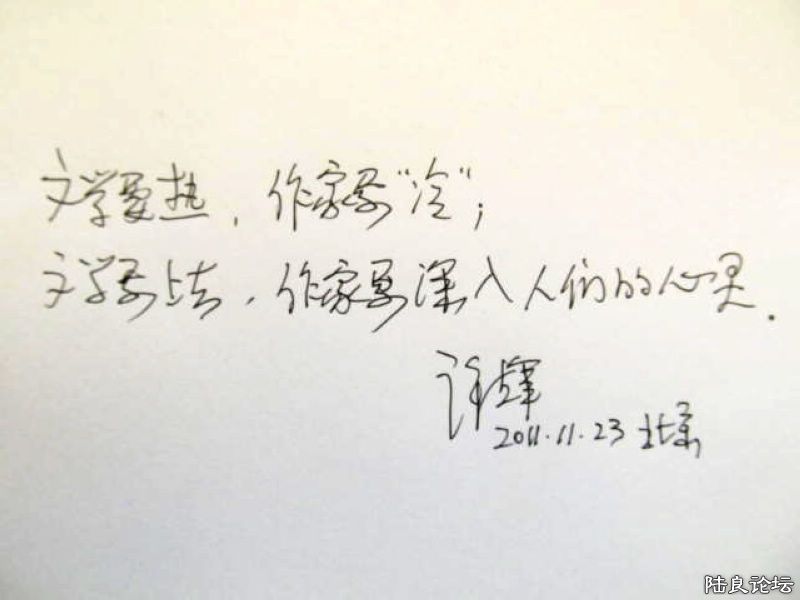 文学要热，作家要“冷”；
文学要上去，作家要深入人们的心灵．
许辉
2011.11.23 北京
陆良论坛